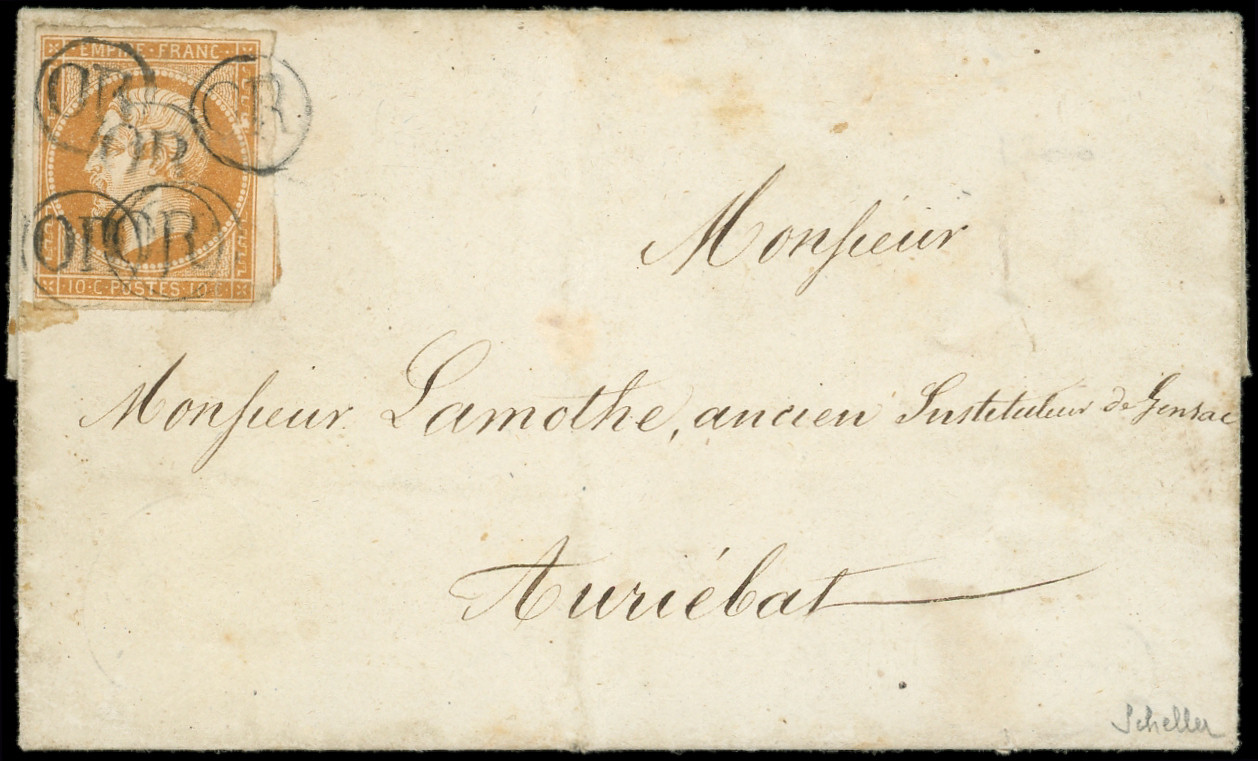 EMPIRE · FRANC ·
OR
OR
OR
OR
OR
· 10 · C · POSTES · 10 · C ·
Monsieur
Monsieur Lamothe, ancien Instituteur de Gensac
Auriébat
Scheller